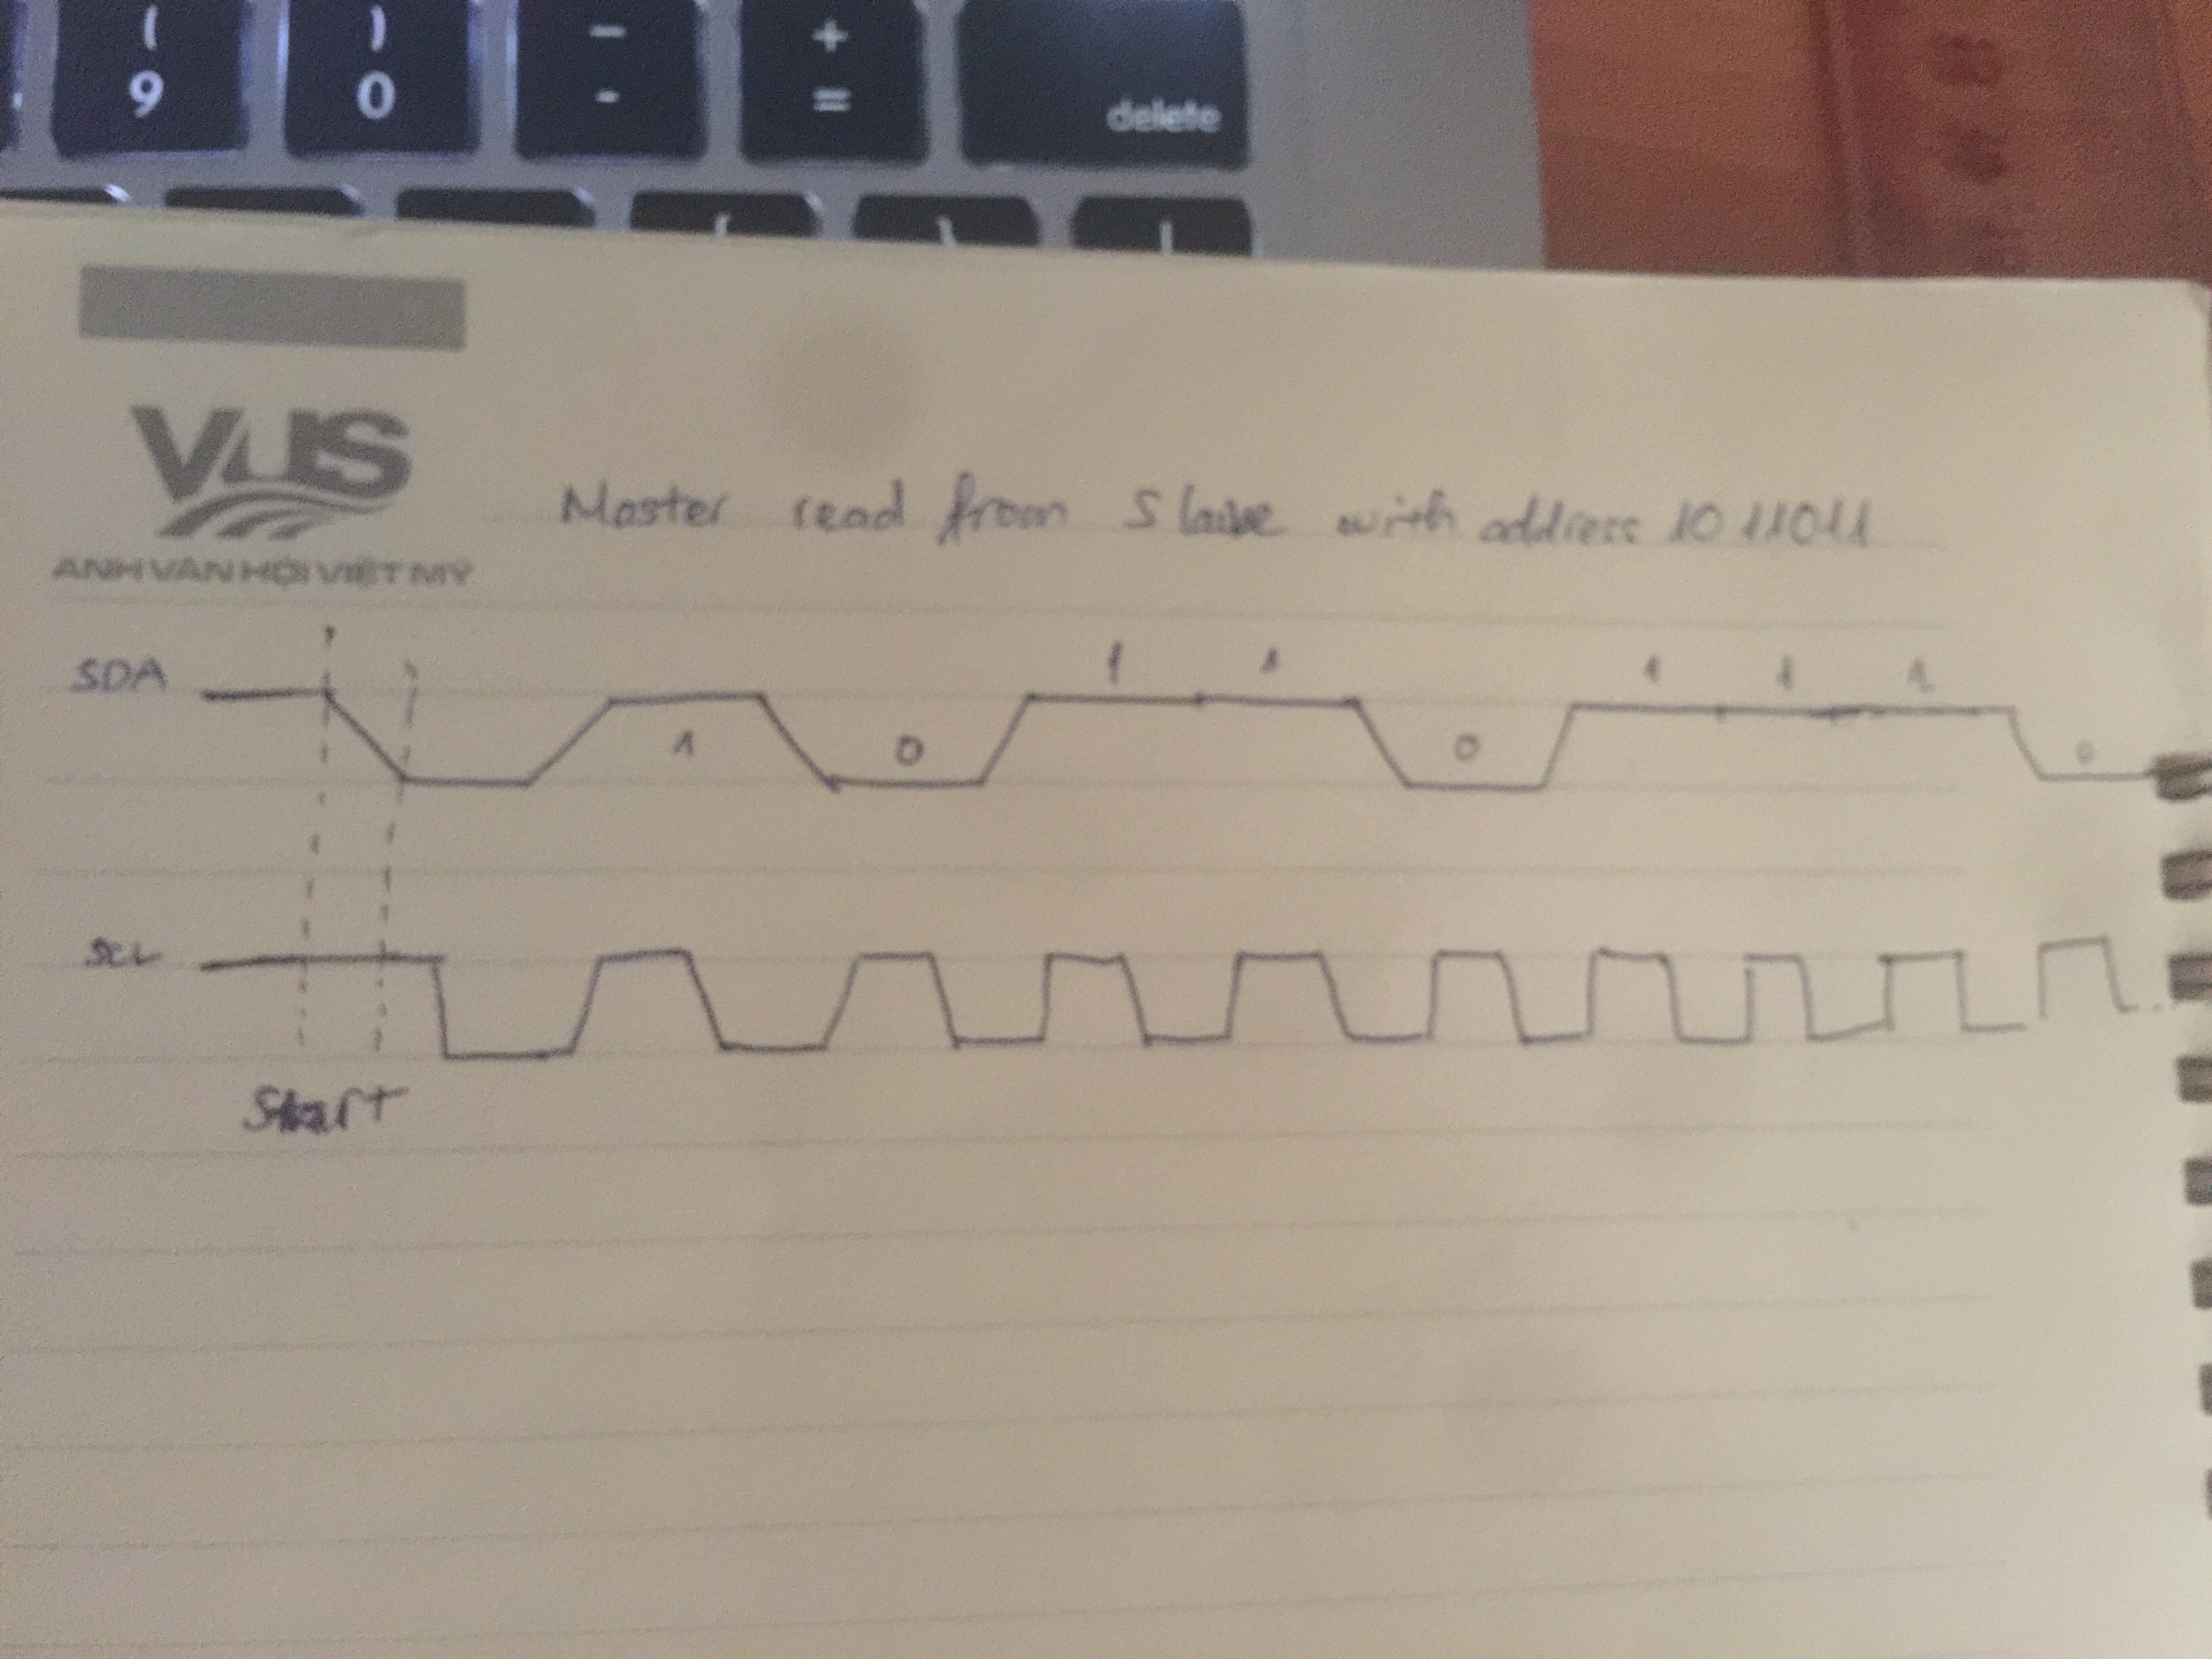 ( ) - +
9 0 - = delete
VUS
ANH VĂN HỘI VIỆT MỸ
Master read from Slave with address 1011011
SDA
1 0 1 1 0 1 1 1 0
SCL
Start